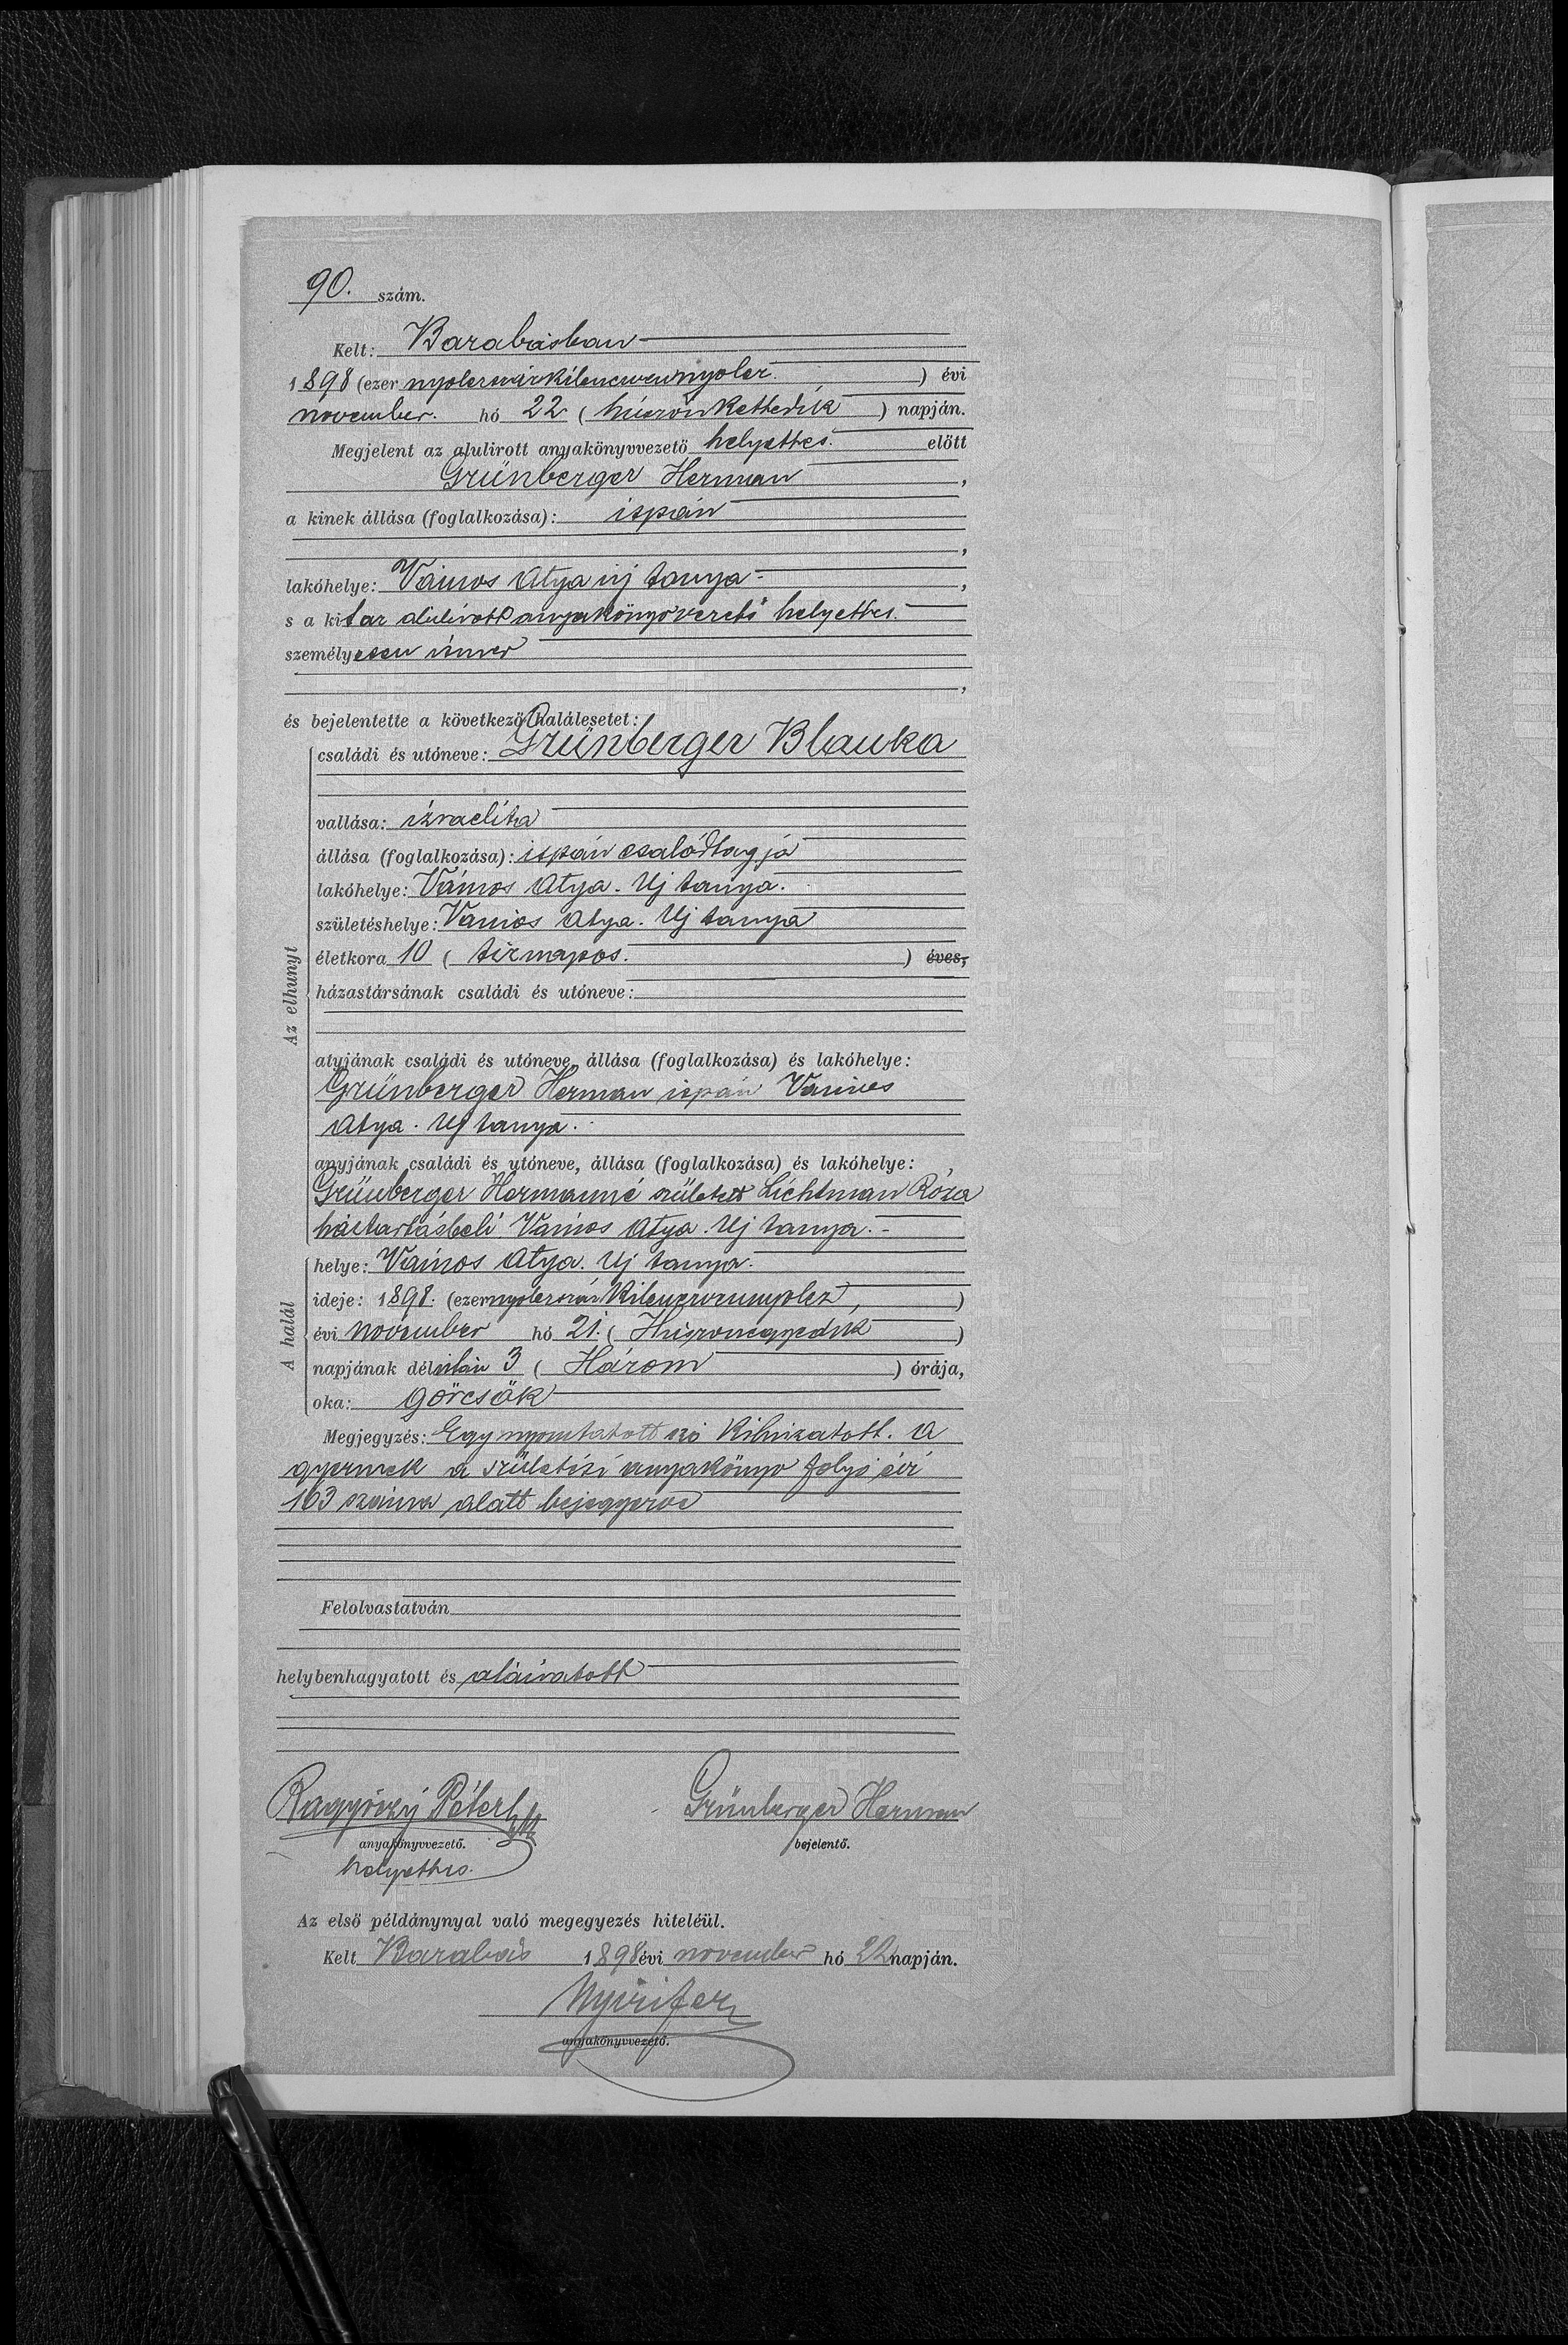 90. szám.
Kelt: Barabásban
1898 (ezer nyolcszázkilencvennyolcz) évi
november hó 22 (húszonkettedik) napján.
Megjelent az alulirott anyakönyvvezető helyettes. előtt
Grünberger Herman,
a kinek állása (foglalkozása): ispán
,
lakóhelye: Vámos Atya uj tanya -,
s a kit az alulirott anyakönyvvezető helyettes.
személyesen ismer
,
és bejelentette a következő halálesetet:
Az elhunyt
családi és utóneve: Grünberger Blanka
vallása: izraelita
állása (foglalkozása): ispán családtagja
lakóhelye: Vámos Atya. Uj tanya.
születéshelye: Vámos Atya. Uj tanya
életkora 10 (tiznapos.) éves,
házastársának családi és utóneve:
atyjának családi és utóneve, állása (foglalkozása) és lakóhelye:
Grünberger Herman ispán Vámos
Atya. Uj tanya.
anyjának családi és utóneve, állása (foglalkozása) és lakóhelye:
Grünberger Hermanné született Lichtman Róza
háztartásbeli Vámos Atya. Uj tanya. -
A halál
helye: Vámos Atya. Uj tanya.
ideje: 1898. (ezernyolcszáz kilenczvennyolcz,)
évi november hó 21. (Huszonegyedik)
napjának délután 3 (Három) órája,
oka: görcsök
Megjegyzés: Egy nyomtatott szó kihúzatott. A
gyermek a születési anyakönyv folyó évi
103 száma alatt bejegyezve
Felolvastatván
helybenhagyatott és aláiratott
Péter Grünberger Herman
anyakönyvvezető. bejelentő.
helyettes.
Az első példánynyal való megegyezés hiteléül.
Kelt Barabás 1898 évi november hó 22 napján.
anyakönyvvezető.